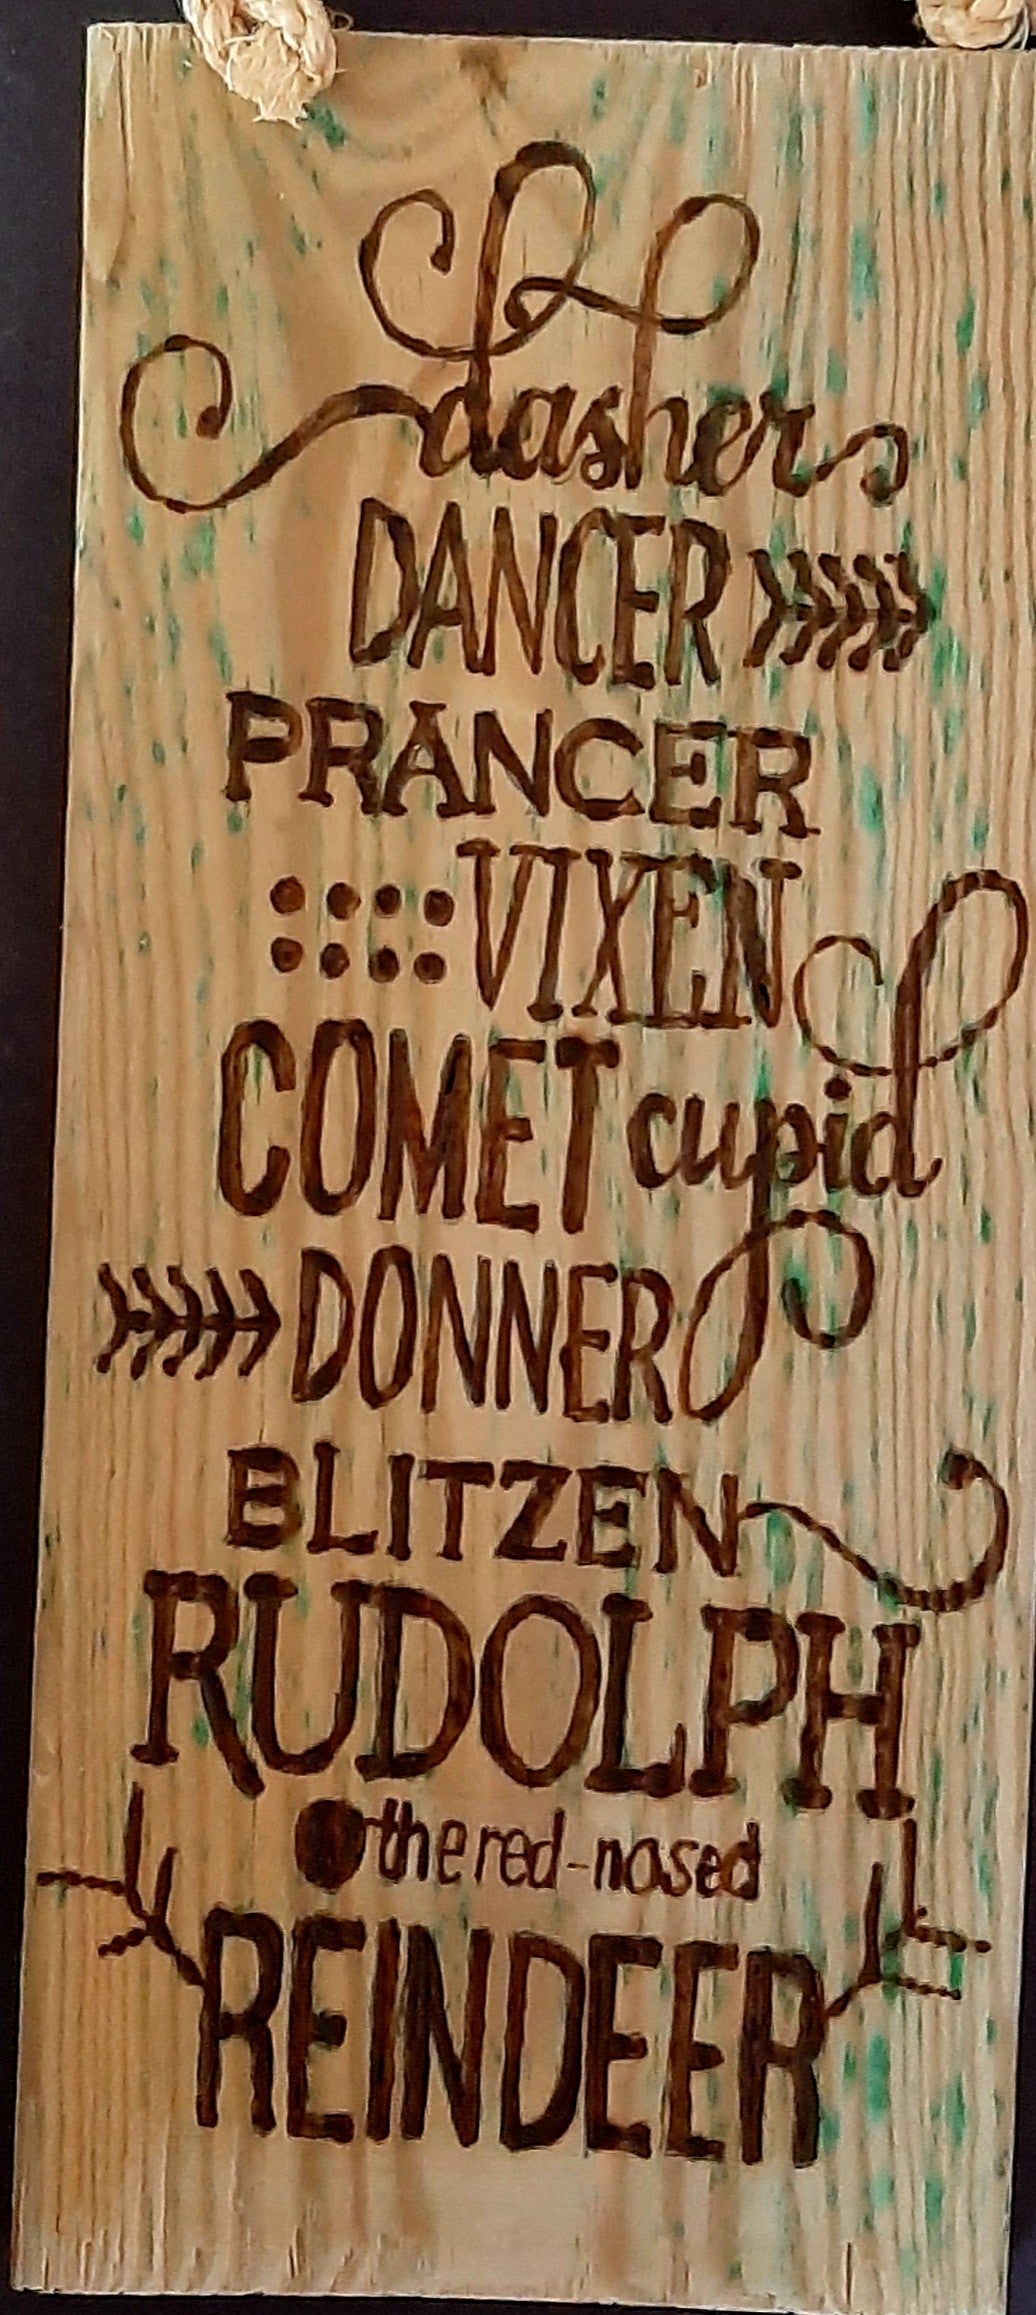 dasher
DANCER
PRANCER
VIXEN
COMET cupid
DONNER
BLITZEN
RUDOLPH
the red-nosed
REINDEER